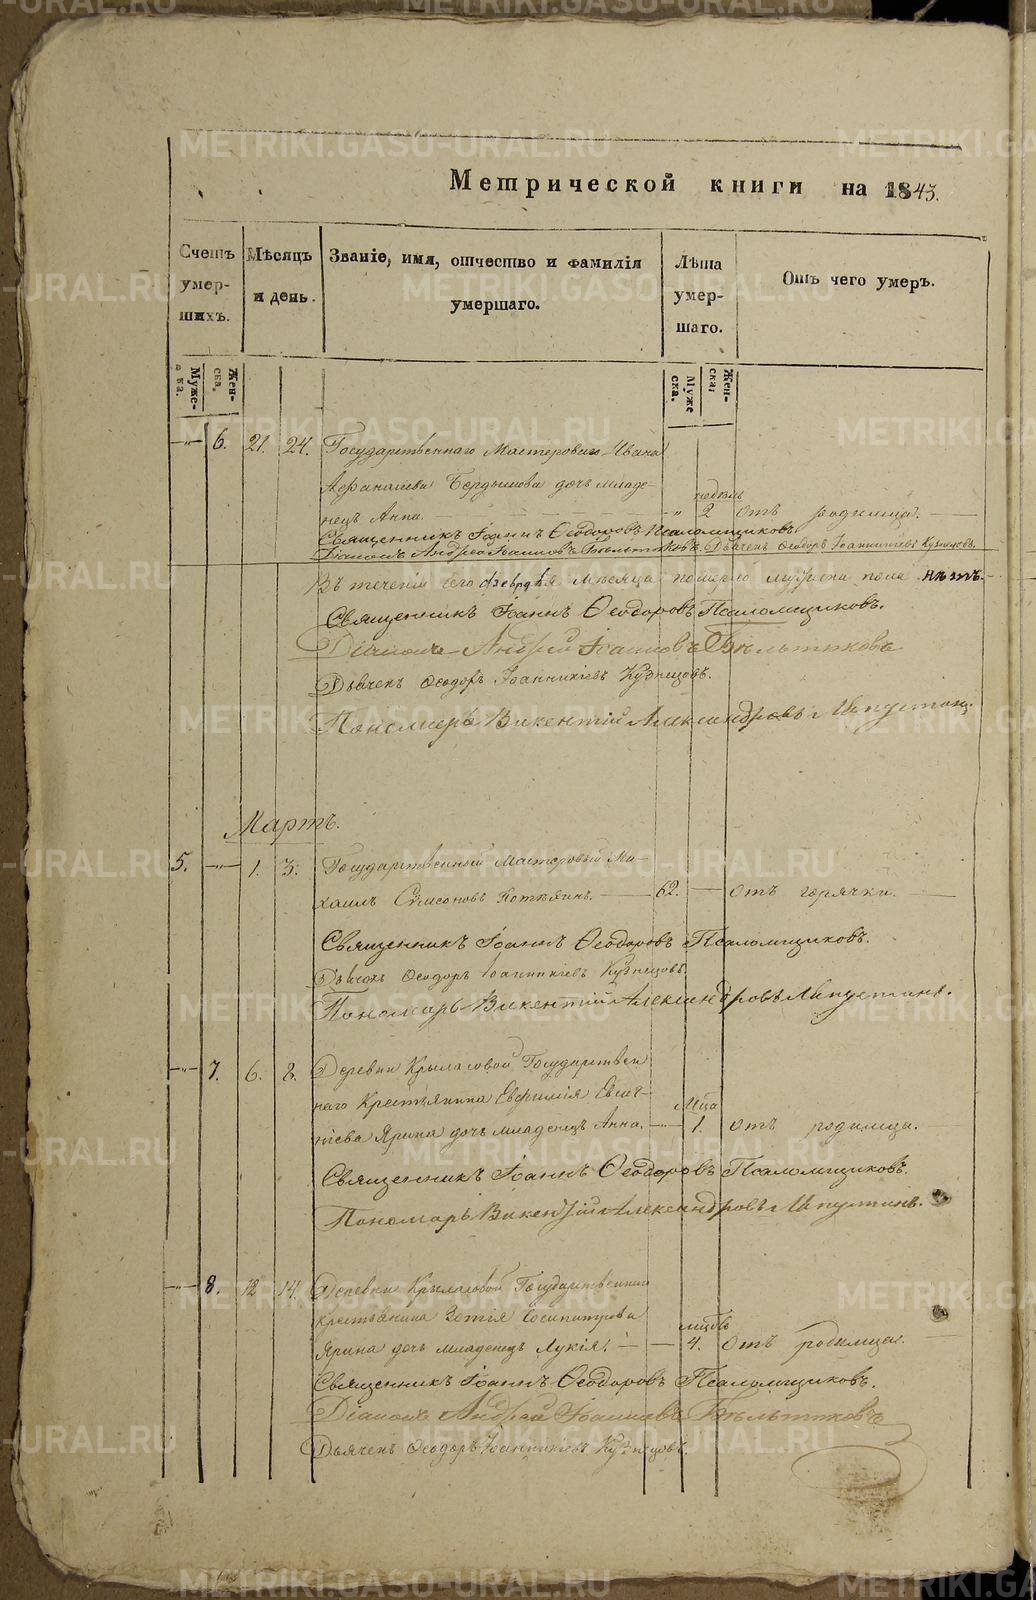 Метрической книги на 1843.
Счетъ умер- шихъ.
Мѣсяцъ и день.
Званіе, имя, отчество и фамилія умершаго.
Лѣта умер- шаго.
Отъ чего умеръ.
Муже- ска.
Жен- ска.
Муже ска.
Жен- ска.
—"— 6. 21. 24. Государственнаго Мастероваго Ивана
Афанасьева Бердышова дочь младе-
недѣль
нецъ Анна. — " 2 отъ родимца. —
Священникъ Іоаннъ Ѳеодоровъ Псаломщиковъ.
Діаконъ Андрей Іоанновъ Бѣльтюковъ. Дьячекъ Ѳеодоръ Іоанникіевъ Кузнецовъ.
Въ теченіи сего февраля мѣсяца померло мужеска пола нѣтъ.—
Священникъ Іоаннъ Ѳеодоровъ Псаломщиковъ.
Діаконъ Андрей Іоанновъ Бѣльтюковъ
Дьячекъ Ѳеодоръ Іоанникіевъ Кузнецовъ.
Пономарь Викентій Александровъ
Мартъ.
5. —"— 1. 3. Государственный Мастеровый Ми-
хаилъ Сумсоновъ — 62. — отъ горячки. —
Священникъ Іоаннъ Ѳеодоровъ Псаломщиковъ.
Дьячекъ Ѳеодоръ Іоанникіевъ Кузнецовъ.
Пономарь Викентій Александровъ
—"— 7. 6. 8. Деревни Крыласовой Государствен
наго Крестьянина Евфимія
Мца
Ярина дочь младенецъ Анна. — 1. отъ родимца. —
Священникъ Іоаннъ Ѳеодоровъ Псаломщиковъ.
Пономарь Викентій Александровъ
—"— 8. 12 14. Деревни Крыласовой Государственнаго
крестьянина Зотія Сосипатрова
мцовъ
Ярина дочь младенецъ Лукія. — — 4. отъ родимца. —
Священникъ Іоаннъ Ѳеодоровъ Псаломщиковъ.
Діаконъ Андрей Іоанновъ Бѣльтюковъ
Дьячекъ Ѳеодоръ Іоанникіевъ Кузнецовъ.
METRIKI.GASO-URAL.RU